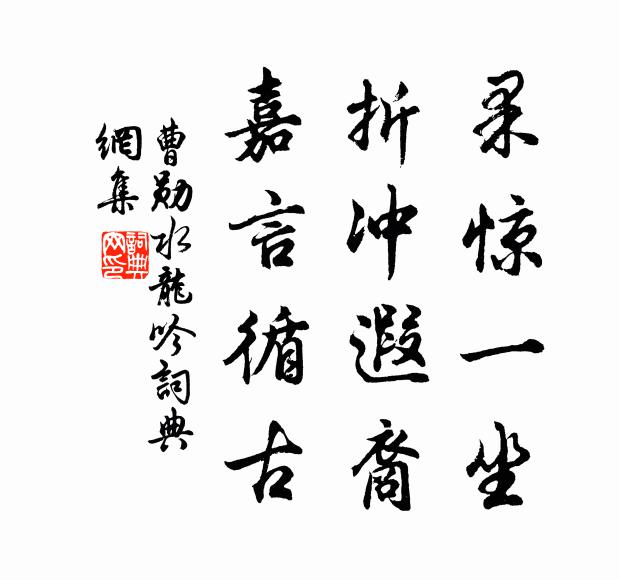 果惊一坐
折冲遐裔
嘉言循古
曹勋水龍吟詞典
網集
詞典
网印